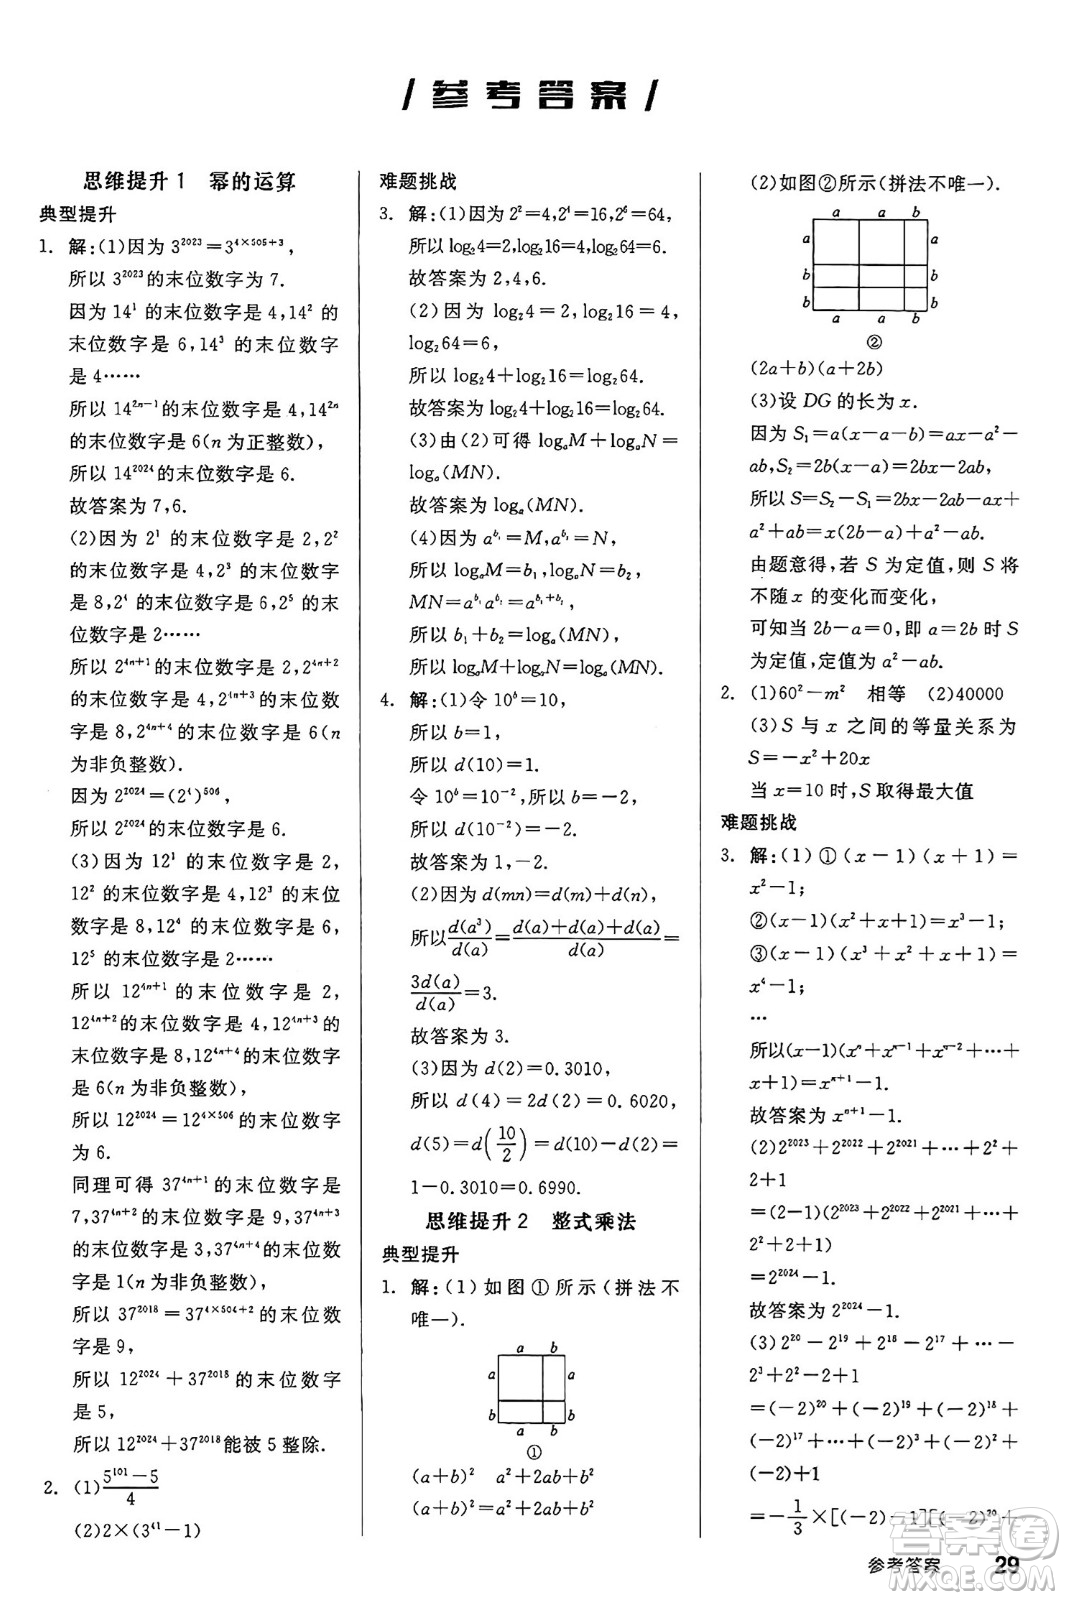 参考答案
思维提升1 幂的运算
典型提升
1. 解:(1)因为 3²⁰²³=3⁴ˣ⁵⁰⁵⁺³,
所以 3²⁰²³的末位数字为 7.
因为 14¹ 的末位数字是 4,14² 的
末位数字是 6,14³ 的末位数字
是 4……
所以 14²ⁿ⁻¹的末位数字是 4,14²ⁿ
的末位数字是 6(n 为正整数),
所以 14²⁰²⁴的末位数字是 6.
故答案为 7,6.
(2)因为 2¹ 的末位数字是 2,2²
的末位数字是 4,2³ 的末位数字
是 8,2⁴ 的末位数字是 6,2⁵ 的末
位数字是 2……
所以 2⁴ⁿ⁺¹的末位数字是 2,2⁴ⁿ⁺²
的末位数字是 4,2⁴ⁿ⁺³的末位数字
是 8,2⁴ⁿ⁺⁴的末位数字是 6(n
为非负整数).
因为 2²⁰²⁴=(2⁴)⁵⁰⁶,
所以 2²⁰²⁴的末位数字是 6.
(3)因为 12¹ 的末位数字是 2,
12² 的末位数字是 4,12³ 的末位
数字是 8,12⁴ 的末位数字是 6,
12⁵ 的末位数字是 2……
所以 12⁴ⁿ⁺¹的末位数字是 2,
12⁴ⁿ⁺²的末位数字是 4,12⁴ⁿ⁺³的
末位数字是 8,12⁴ⁿ⁺⁴的末位数字
是 6(n 为非负整数).
所以 12²⁰²⁴=12⁴ˣ⁵⁰⁶的末位数字
为 6.
同理可得 37⁴ⁿ⁺¹的末位数字是
7,37⁴ⁿ⁺²的末位数字是 9,37⁴ⁿ⁺³
的末位数字是 3,37⁴ⁿ⁺⁴的末位数
字是 1(n 为非负整数).
所以 37²⁰¹⁸=37⁴ˣ⁵⁰⁴⁺²的末位数
字是 9,
所以 12²⁰²⁴+37²⁰¹⁸的末位数字
是 5,
所以 12²⁰²⁴+37²⁰¹⁸能被 5 整除.
2. (1)(5¹⁰¹−5)/4
(2)2×(3⁴¹−1)
难题挑战
3. 解:(1)因为 2²=4,2⁴=16,2⁶=64,
所以 log₂4=2,log₂16=4,log₂64=6.
故答案为 2,4,6.
(2)因为 log₂4=2,log₂16=4,
log₂64=6,
所以 log₂4+log₂16=log₂64.
故答案为 log₂4+log₂16=log₂64.
(3)由(2)可得 logₐM+logₐN=
logₐ(MN).
故答案为 logₐ(MN).
(4)因为 a^b₁=M,a^b₂=N,
所以 logₐM=b₁,logₐN=b₂,
MN=a^b₁·a^b₂=a^(b₁+b₂),
所以 b₁+b₂=logₐ(MN),
所以 logₐM+logₐN=logₐ(MN).
4. 解:(1)令 10ᵇ=10,
所以 b=1,
所以 d(10)=1.
令 10ᵇ=10⁻²,所以 b=−2,
所以 d(10⁻²)=−2.
故答案为 1,−2.
(2)因为 d(mn)=d(m)+d(n),
所以 d(a³)/d(a)=(d(a)+d(a)+d(a))/d(a)=
3d(a)/d(a)=3.
故答案为 3.
(3)因为 d(2)=0.3010,
所以 d(4)=2d(2)=0.6020,
d(5)=d(10/2)=d(10)−d(2)=
1−0.3010=0.6990.
思维提升2 整式乘法
典型提升
1. 解:(1)如图①所示(拼法不
唯一).
a b
a a
b b
a b
①
(a+b)² a²+2ab+b²
(a+b)²=a²+2ab+b²
(2)如图②所示(拼法不唯一).
a a b
a a
b b
b b
a a b
②
(2a+b)(a+2b)
(3)设 DG 的长为 x.
因为 S₁=a(x−a−b)=ax−a²−
ab,S₂=2b(x−a)=2bx−2ab,
所以 S=S₂−S₁=2bx−2ab−ax+
a²+ab=x(2b−a)+a²−ab.
由题意得,若 S 为定值,则 S 将
不随 x 的变化而变化,
可知当 2b−a=0,即 a=2b 时 S
为定值,定值为 a²−ab.
2. (1)60²−m² 相等 (2)40000
(3)S 与 x 之间的等量关系为
S=−x²+20x
当 x=10 时,S 取得最大值
难题挑战
3. 解:(1)①(x−1)(x+1)=
x²−1;
②(x−1)(x²+x+1)=x³−1;
③(x−1)(x³+x²+x+1)=
x⁴−1;
…
所以(x−1)(xⁿ+xⁿ⁻¹+xⁿ⁻²+…+
x+1)=xⁿ⁺¹−1.
故答案为 xⁿ⁺¹−1.
(2)2²⁰²³+2²⁰²²+2²⁰²¹+…+2²+
2+1
=(2−1)(2²⁰²³+2²⁰²²+2²⁰²¹+…+
2²+2+1)
=2²⁰²⁴−1.
故答案为 2²⁰²⁴−1.
(3)2²⁰−2¹⁹+2¹⁸−2¹⁷+…−
2³+2²−2+1
=(−2)²⁰+(−2)¹⁹+(−2)¹⁸+
(−2)¹⁷+…+(−2)³+(−2)²+
(−2)+1
=−1/3×[(−2)−1][(−2)²⁰+
参考答案 29
答案圈
MXQE.COM